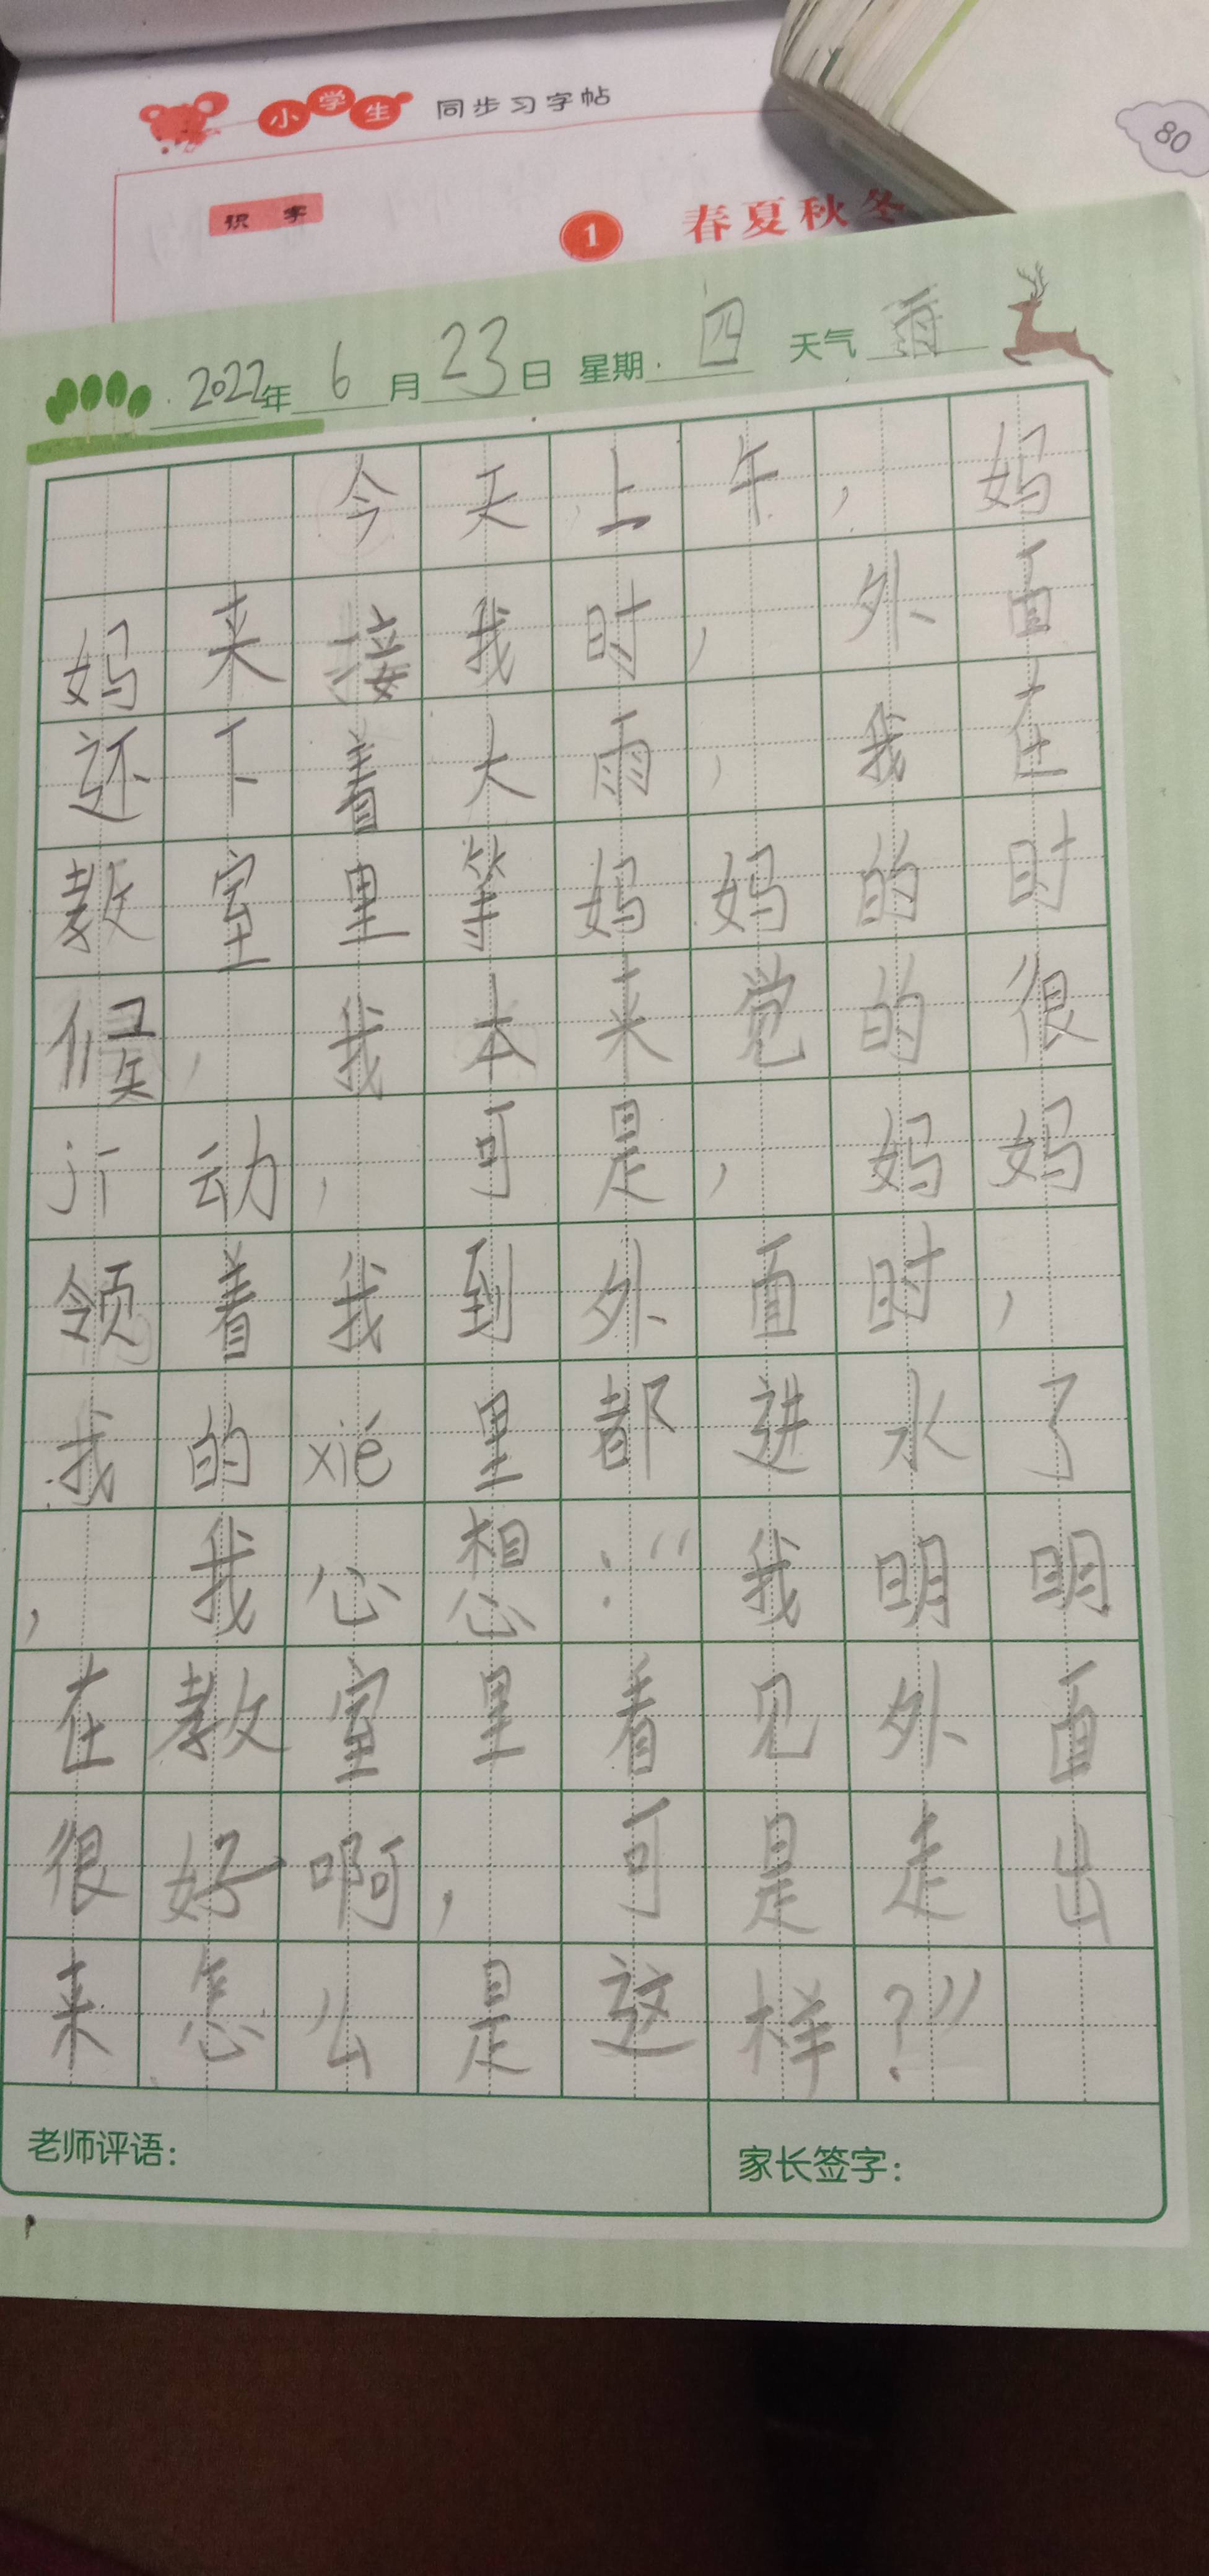 小学生 同步习字帖
80
识字
1 春夏秋冬
2022年6月23日 星期四 天气雨
今天上午，妈
妈来接我时，外面
还下着大雨，我在
教室里等妈妈的时
候，我本来觉的很
行动，可是，妈妈
领着我到外面时，
我的xié里都进水了
，我心想：“我明明
在教室里看见外面
很好啊，可是走出
来怎么是这样？”
老师评语：
家长签字：